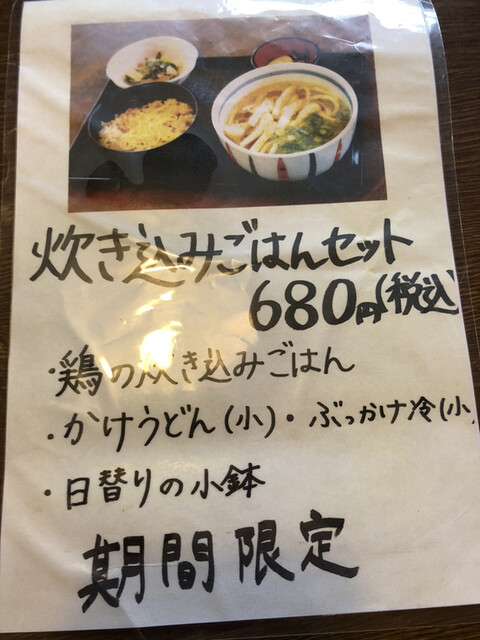 炊き込みごはんセット
680円(税込)
・鶏の炊き込みごはん
・かけうどん(小)・ぶっかけ冷(小
・日替りの小鉢
期間限定